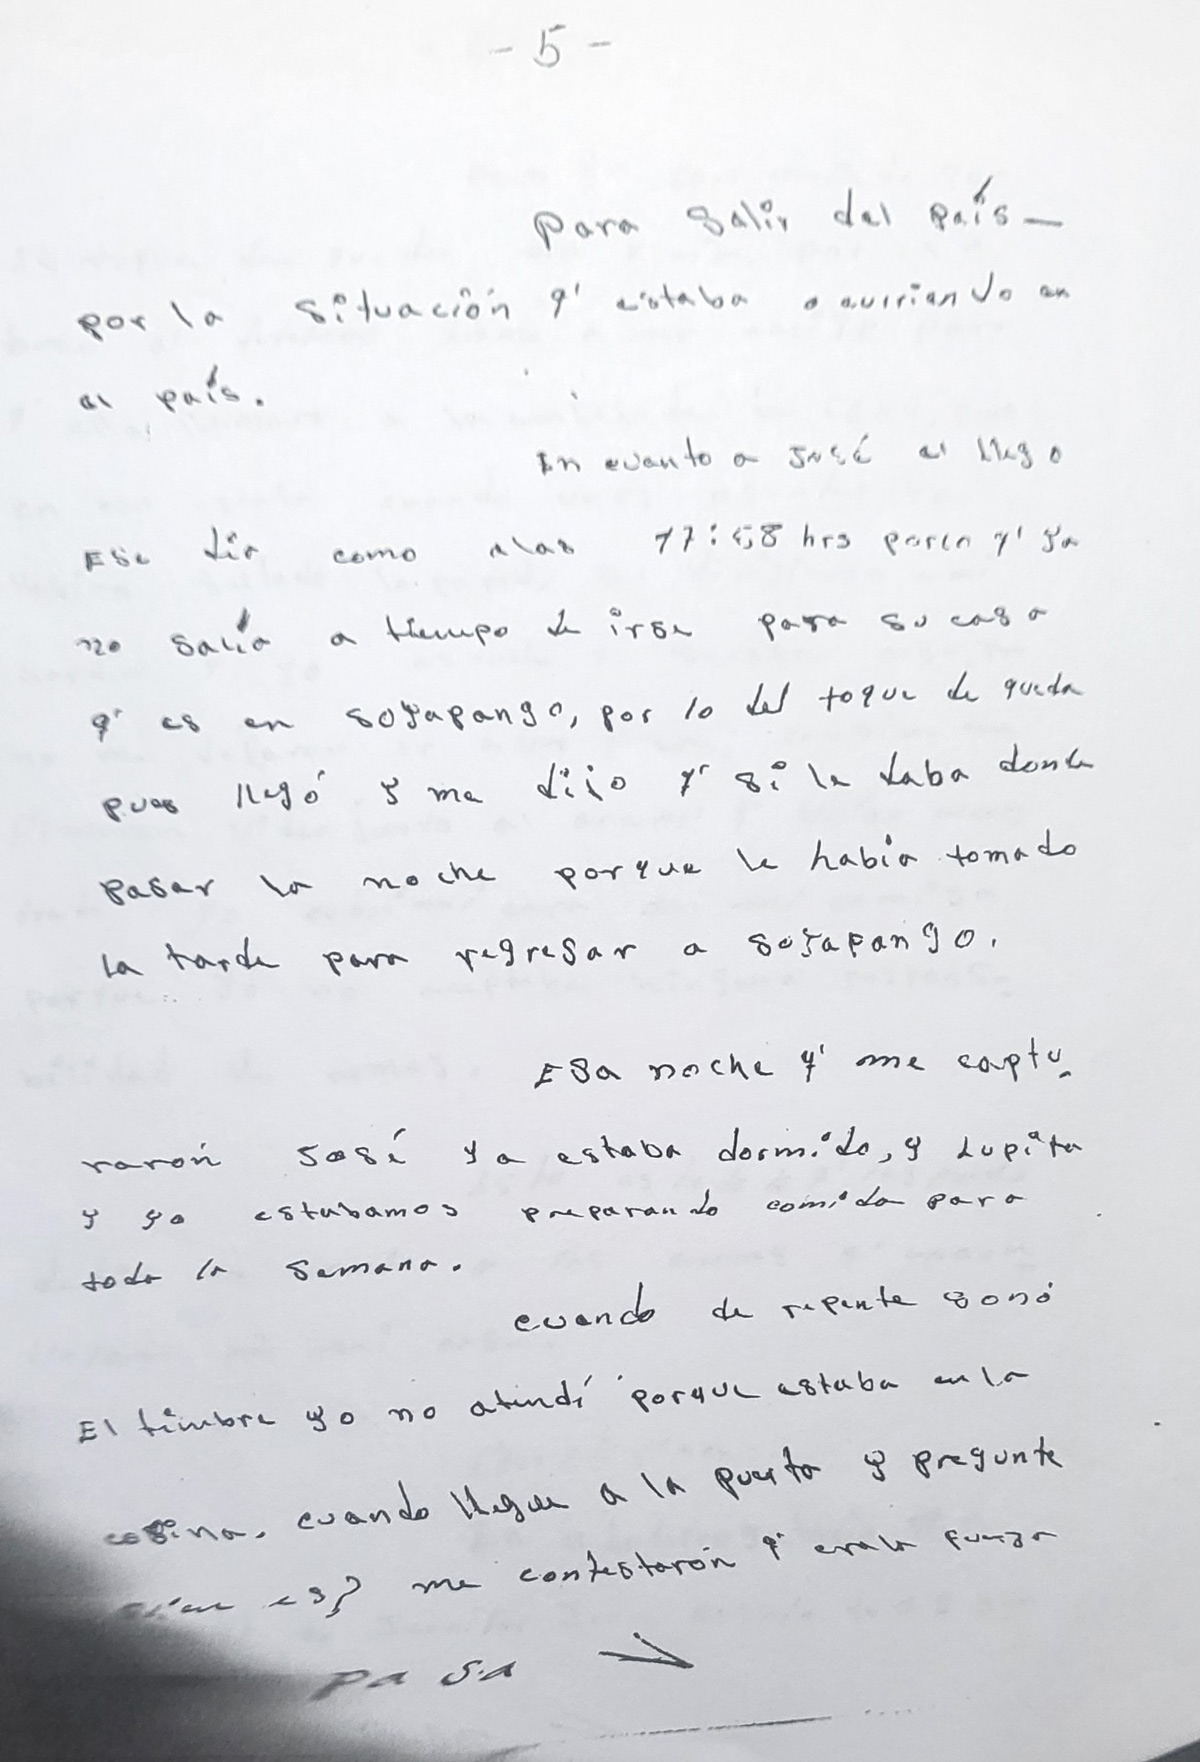 - 5 -
para salir del país —
por la situación q' estaba ocurriendo en
el país.
En cuanto a José el llego
Ese día como alas 17:58 hrs q' ya
no salía a tiempo de irse para su casa
q' es en soyapango, por lo del toque de queda
pues llegó y me dijo q' si le daba donde
pasar la noche porque le había tomado
la tarde para regresar a soyapango.
Esa noche q' me captu-
rarón José ya estaba dormido, y Lupita
y yo estabamos preparando comida para
toda la semana.
cuando de repente sonó
El timbre yo no atendí porque estaba en la
cosina. cuando llegue a la puerta y pregunte
es? me contestarón q' era la fuerza
pasa →